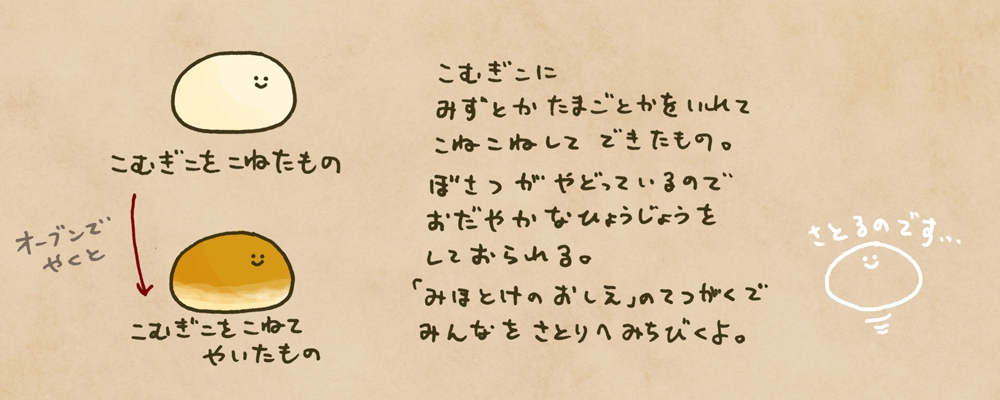 こむぎこを こねたもの
オーブンで
やくと
こむぎこを こねて
やいたもの
こむぎこに
みずとか たまごとかを いれて
こねこねして できたもの。
ぼさつ が やどっているので
おだやかな ひょうじょうを
しておられる。
「みほとけの おしえ」のてつがくで
みんなを さとりへ みちびくよ。
さとるのです...